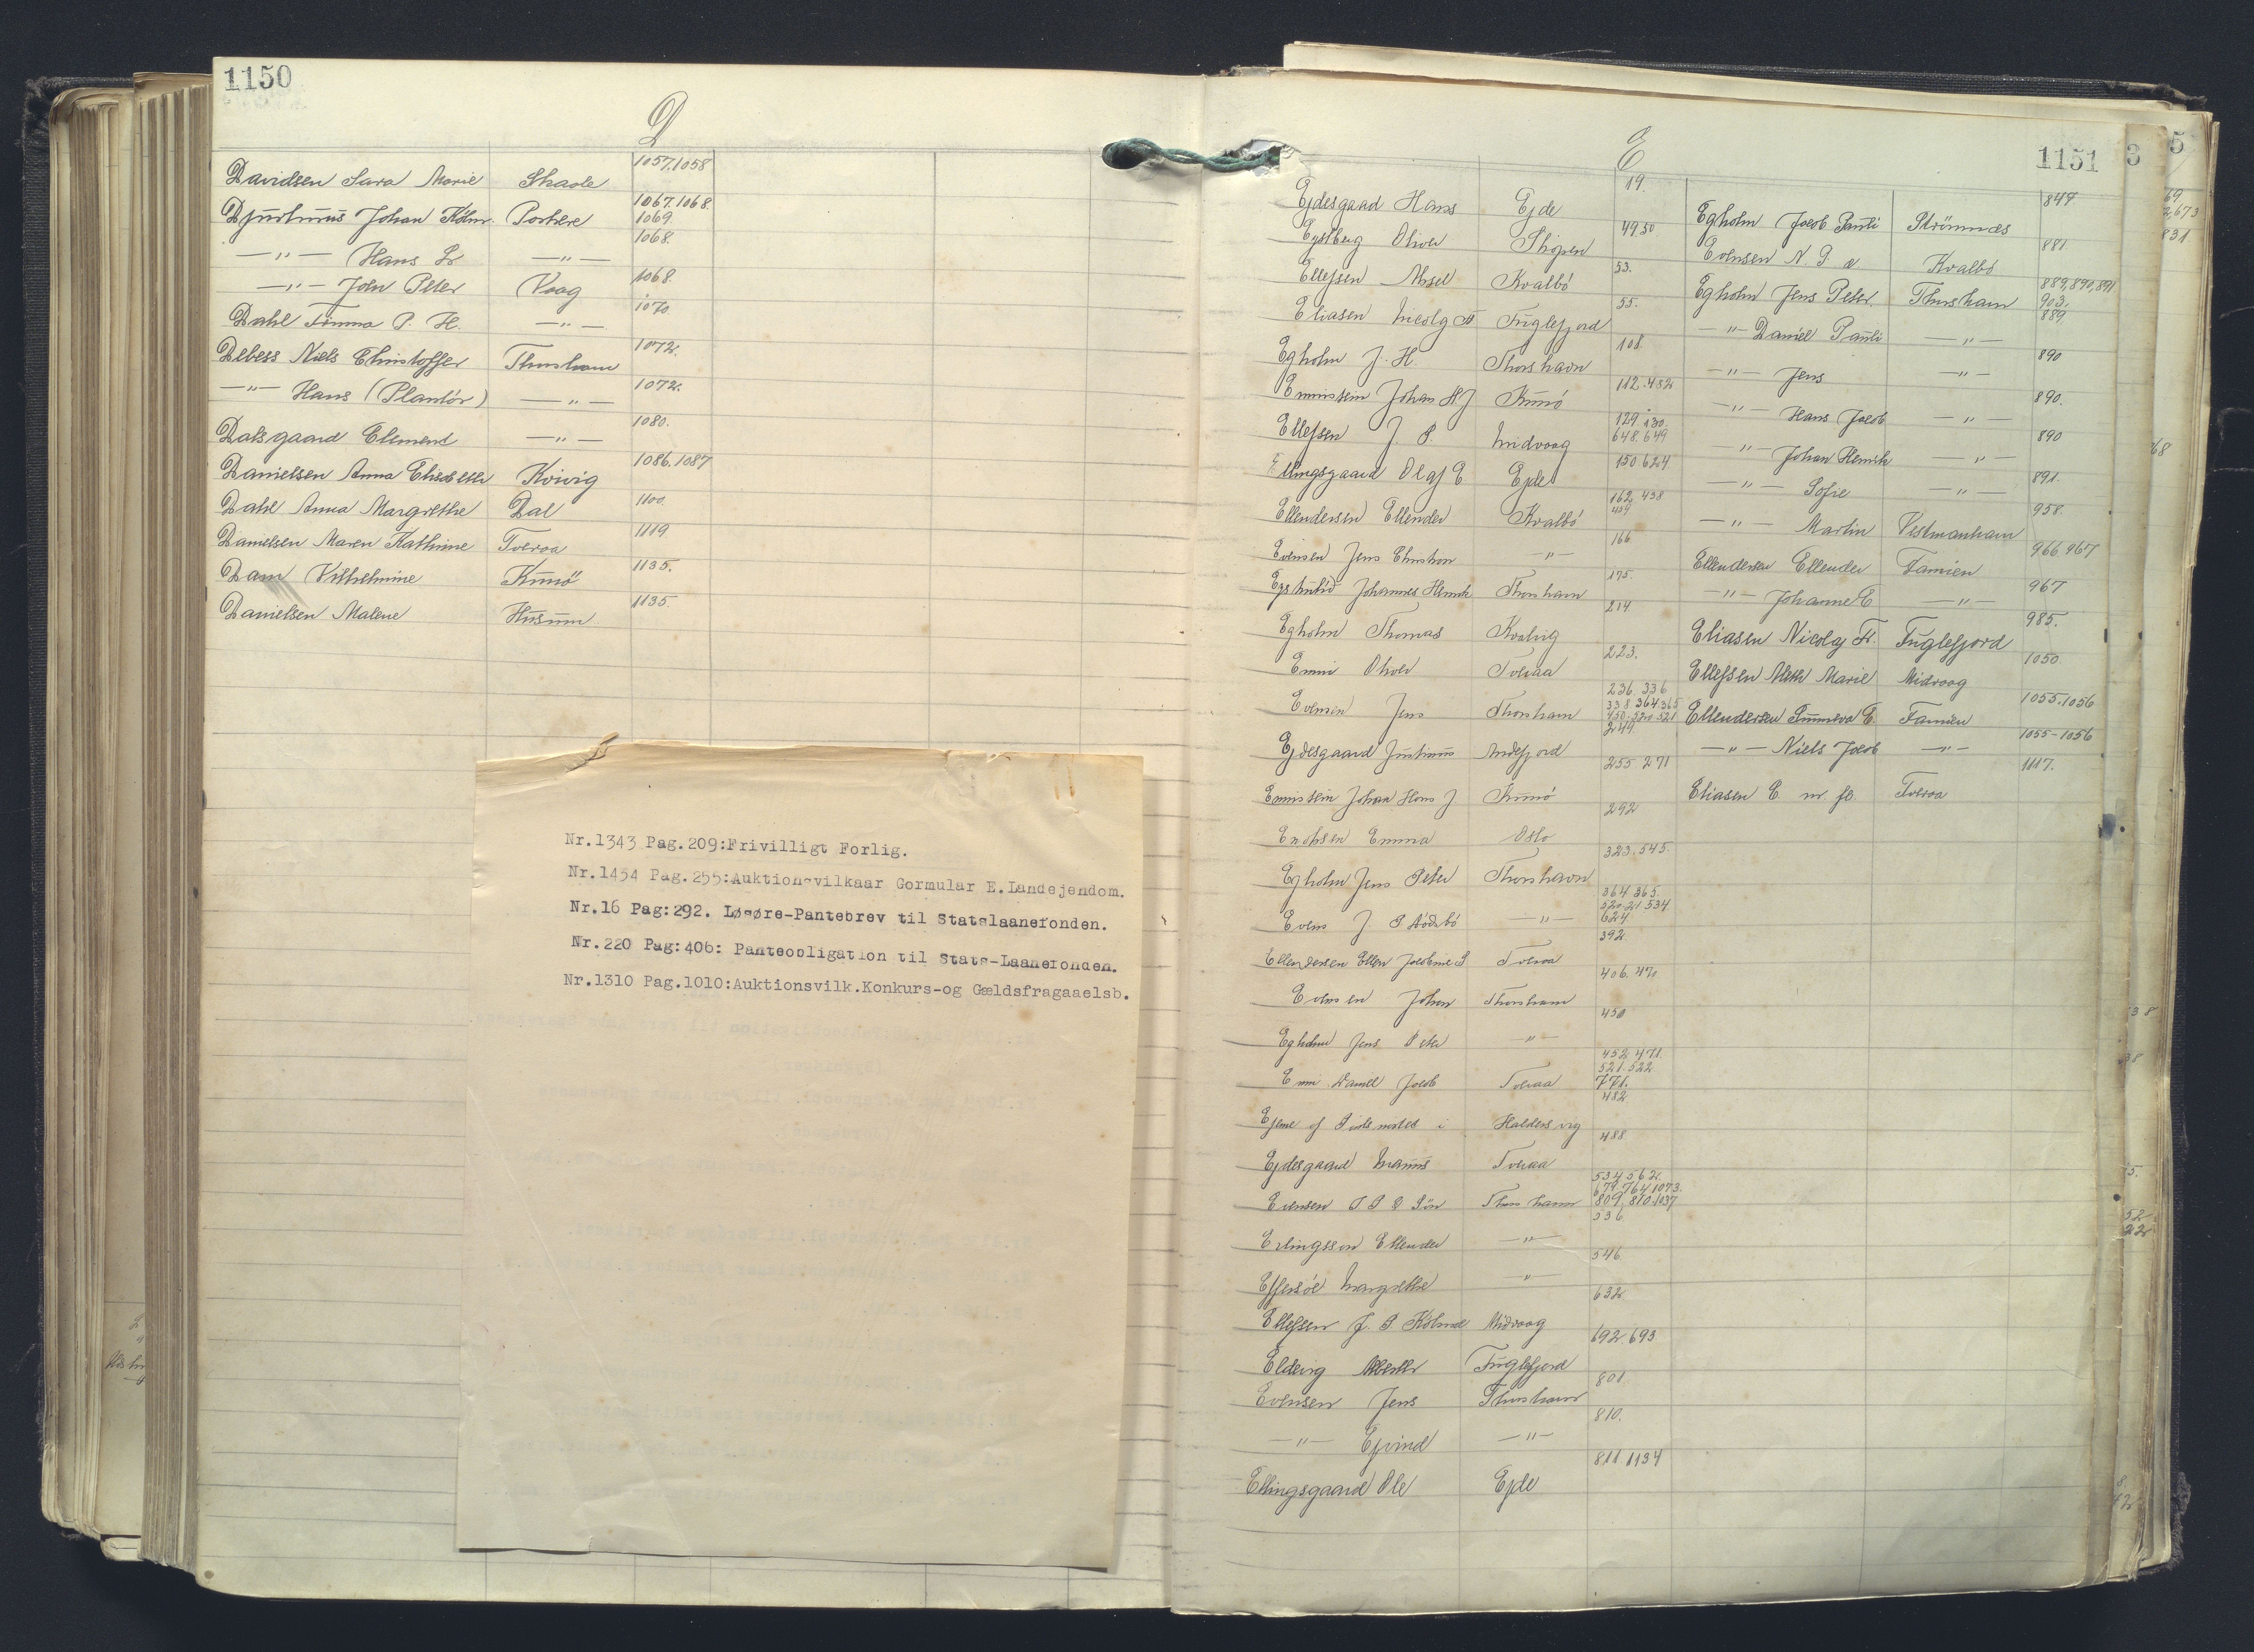 1150
D
Davidsen Sara Marie Skaale 1057.1058
Djurhuus Johan Kölm. Porkere 1067.1068. 1069
—"— Hans Dr —"— 1068.
—"— John Peter Vaag 1068.
Dahl Timma P. H. —"— 1070.
Debess Niels Christoffer Thorshavn 1072.
—"— Hans (Plantör) —"— 1072.
Dalsgaard Clement —"— 1080.
Danielsen Anna Elisabeth Kvivig 1086.1087
Dahl Anna Margrethe Dal 1100.
Danielsen Maren Kathrine Tveraa 1119
Dam Vilhelmine Kunö 1135.
Danielsen Malene Husum 1135.
Nr.1343 Pag.209:Frivilligt Forlig.
Nr.1454 Pag.255:Auktionsvilkaar Gormular E.Landejendom.
Nr.16 Pag:292. Løsøre-Pantebrev til Statslaanefonden.
Nr.220 Pag:406: Panteobligation til Stats-Laanefonden.
Nr.1310 Pag.1010:Auktionsvilk.Konkurs-og Gældsfragaaelsb.
1151
E
Ejdesgaard Hans Ejde 19.
Egelberg Oliver Skopen 49.50
Ellefsen Absel Kvalbö 53.
Eliasen Nicolg Fr Fuglefjord 55.
Egholm J. H. Thorshavn 108
Ennistein Johan H J Kunö 112.482
Ellefsen J. P. Midvaag 129.130. 648.649
Ellingsgaard Olaf E Ejde 150.624
Ellendersen Ellender Kvalbö 162.438 439
Evensen Jens Christian —"— 166
Egstrutid Johannes Henrik Thorshavn 175.
Egholm Thomas Kvalvig 214
Enni Oliver Tveraa 223.
Evensen Jens Thorshavn 236.336 338 364 365 450.520.521
Ejdesgaard Justinus Andefjord 249
Ennistein Johan Hans J Kunö 255 271
Enoksen Emma Oslo 292
Egholm Jens Peter Thorshavn 323.545.
Evens J. P Aódebó —"— 364 365. 520-21 534 624
Ellendersen Ellen Jacobine S Tveraa 392.
Evensen Johan Thorshavn 406.470
Egholm Jens Peter —"— 450
Enni Daniel Jacob Tveraa 452.471. 521.522 771.
Ejerne af Pæstemostes i Haldersvig 482.
Ejdesgaard Magnus Tveraa 488
Evensen J P & Sön Thorshavn 534 562. 679.764 1073. 809, 810.1037
Erlingsson Ellender —"— 536
Effersöe Margrethe —"— 546
Ellefsen J. P. Kölmd Midvaag 632
Eldevig Alberth Fuglefjord 692 693
Evensen Jens Thorshavn 801
—"— Ejvind —"— 810.
Ellingsgaard Ole Ejde 811.1134
Egholm Jacob Pauli Strömnæs 849
Evensen N. P. & Kvalbö 881
Egholm Jens Peter Thorshavn 889,890,891 903.
—"— Daniel Pauli —"— 889
—"— Jens —"— 890
—"— Hans Jacob —"— 890.
—"— Johan Henrik —"— 890
—"— Sofie —"— 891.
—"— Martin Vestmanhavn 958.
Ellendersen Ellender Famien 966 967
—"— Johanne E —"— 967
Eliasen Nicolaj Fr. Fuglefjord 985.
Ellefsen Meth Marie Midvaag 1050
Ellendersen Sunneva E. Famien 1055.1056
—"— Niels Jacob —"— 1055-1056
Eliasen E. m. fl. Tveraa 1117.